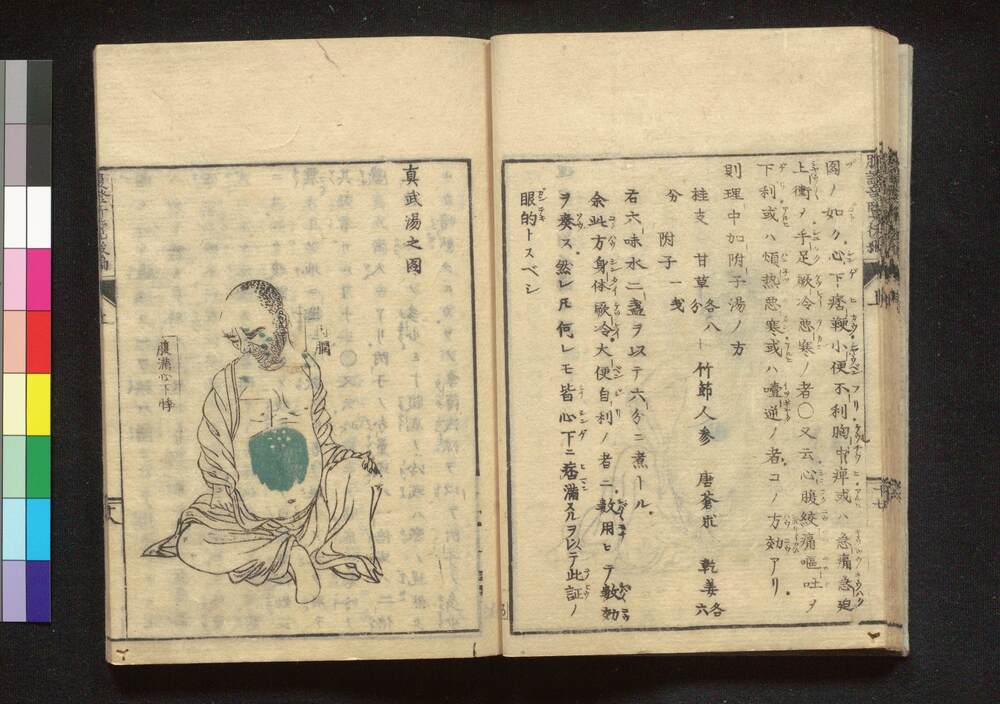 図ノ如ク心下痞鞕小便不利胸中痺或ハ急痛急廹
上衝ヲ手足厥冷悪寒ノ者〇又云心腹絞痛嘔吐ヲ
下利或ハ煩熱悪寒或ハ噎逆ノ者コノ方効アリ
則理中加附子湯ノ方
桂支 甘草各八分 竹節人参 唐蒼朮 乾姜各六
分 附子一戋
右六味水二盞ヲ以テ六分ニ煮ール
余此方身体厥冷大便自利ノ者ニ数用ヒテ数効
ヲ奏ス然レ𪜈何レモ皆心下ニ痞満スルヲ以テ此証ノ
眼的トスベシ
真武湯之図
肉瞤
腹満心下悸